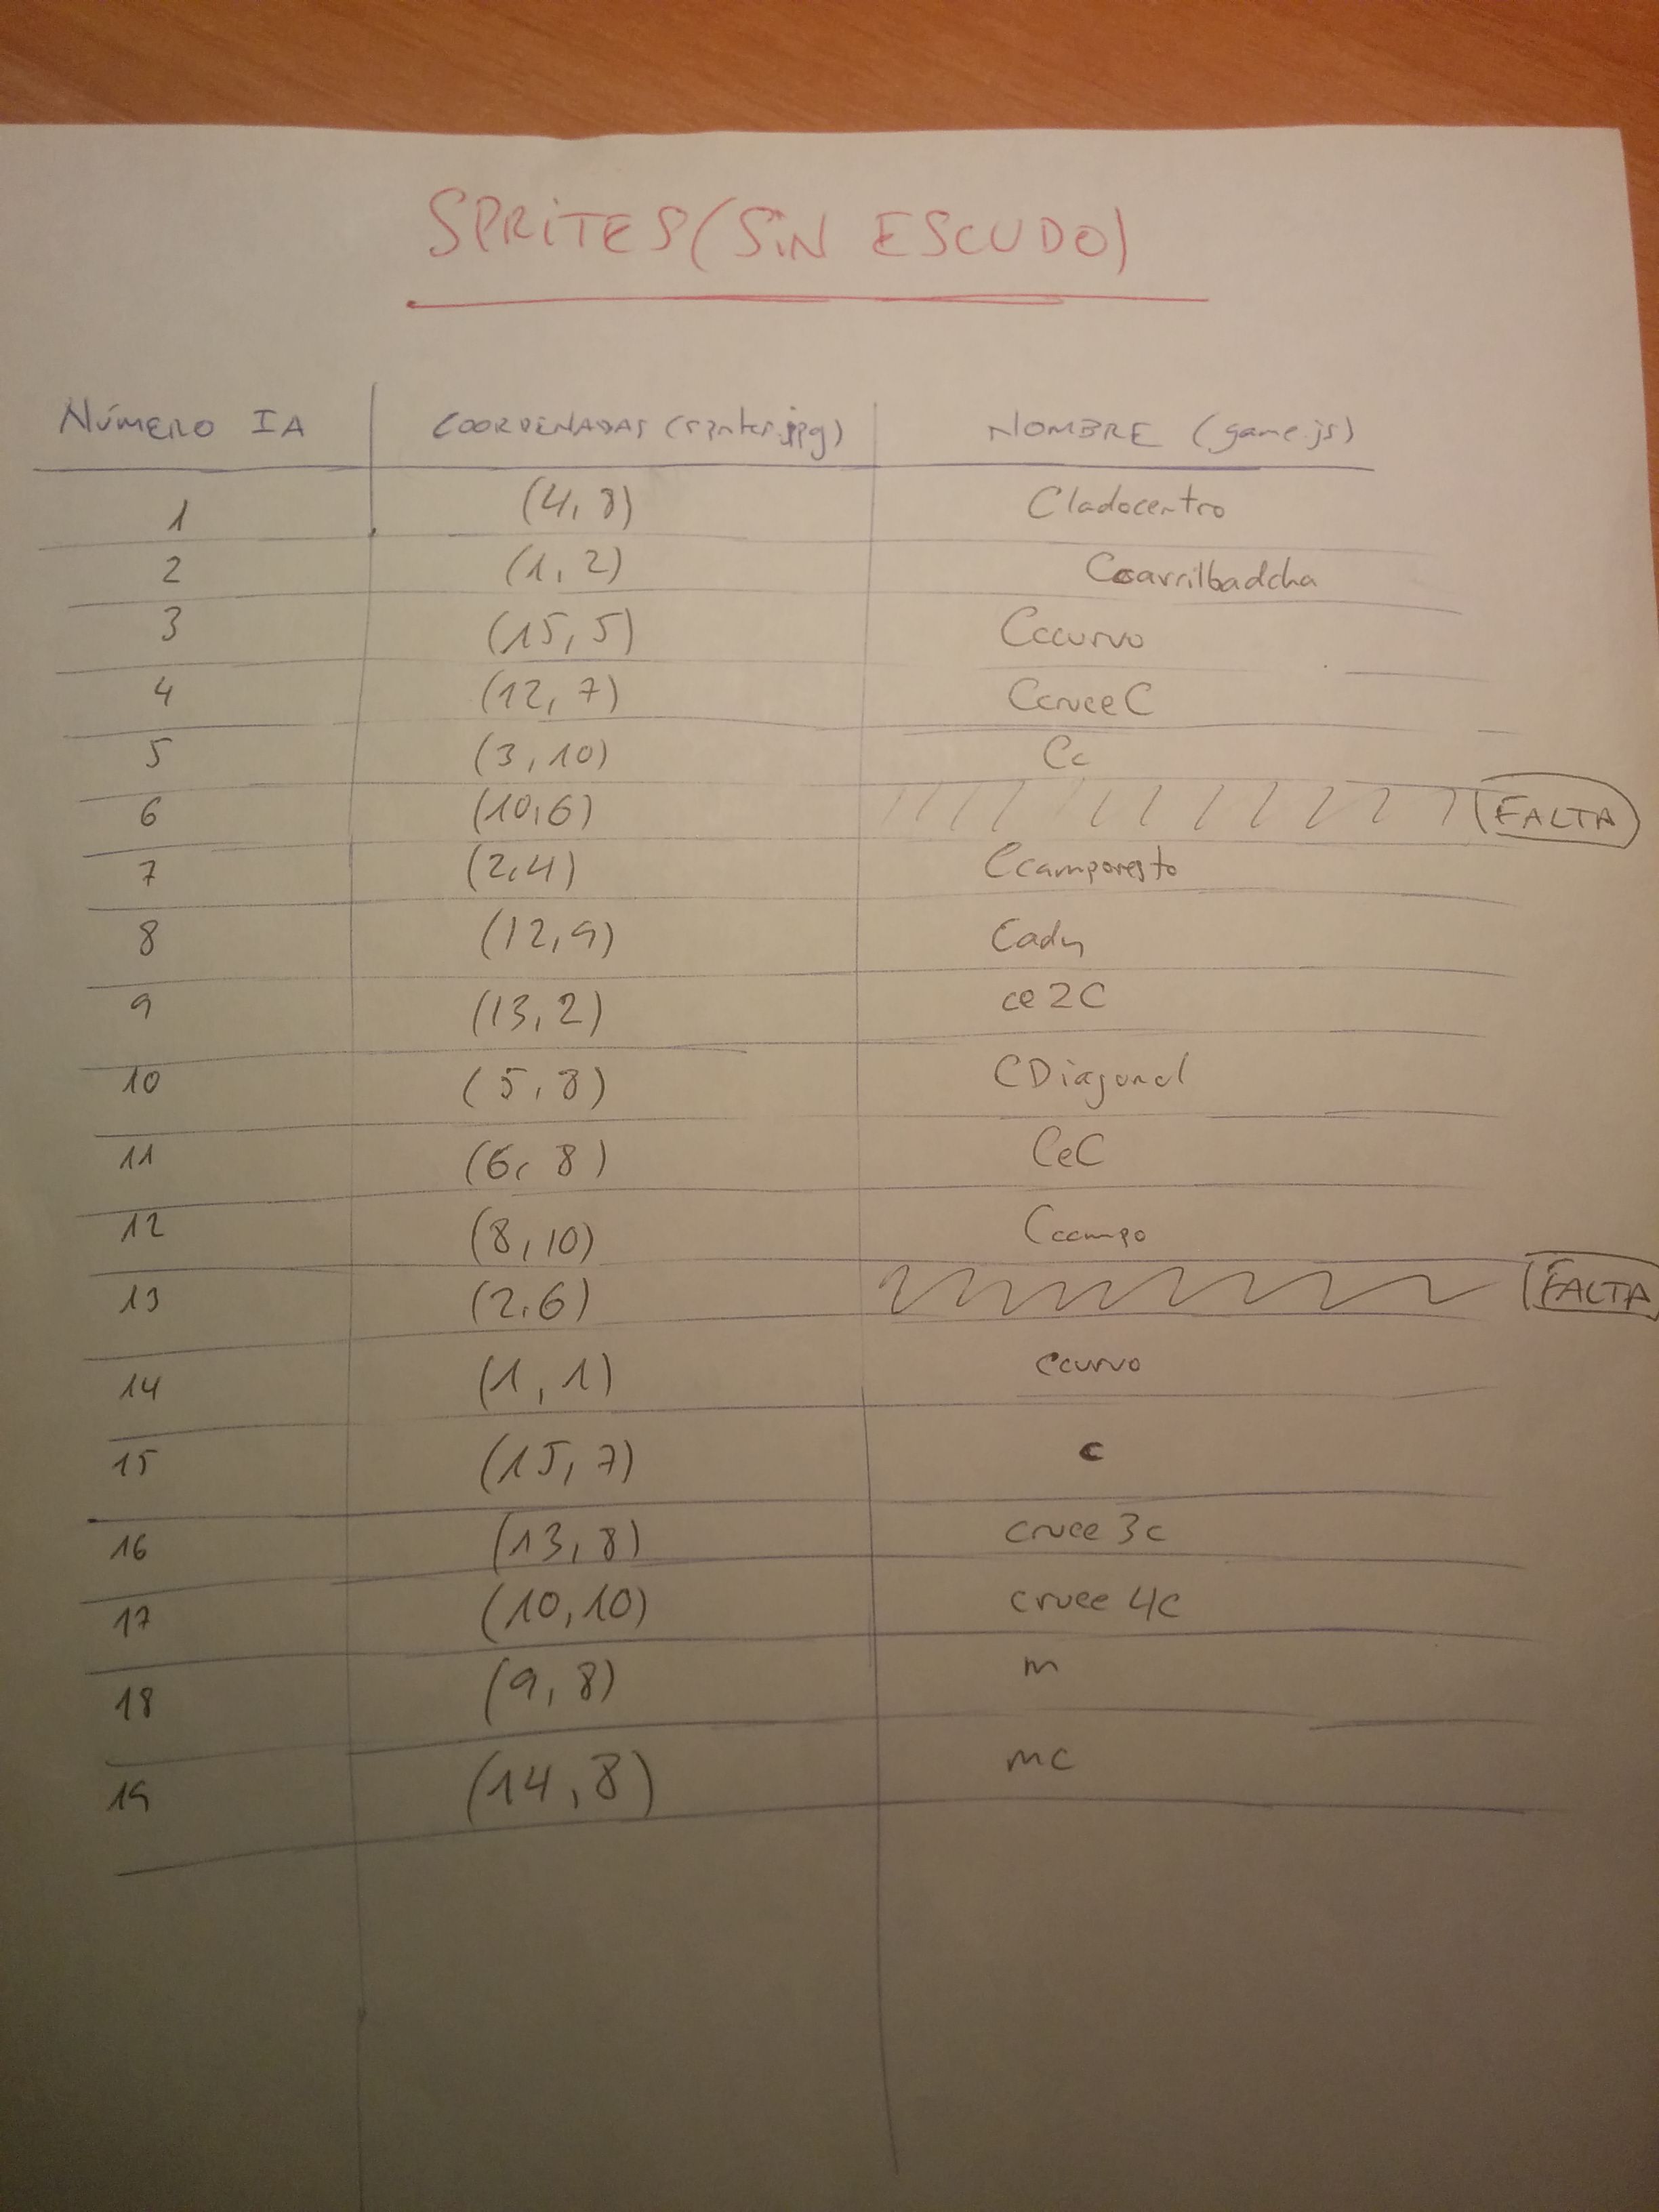 SPRITES (SIN ESCUDO)
NÚMERO IA COORDENADAS NOMBRE (game.js)
1 (4, 8) Cladocentro
2 (1, 2) Ccarrilbadcha
3 (15, 5) Cccurvo
4 (12, 7) CcruceC
5 (3, 10) Cc
6 (10,6) FALTA
7 (2,4) Ccamporesto
8 (12,9) Cady
9 (13,2) ce2C
10 (5,8) CDiagonal
11 (6, 8) CeC
12 (8,10) Ccampo
13 (2,6) FALTA
14 (1, 1) ccurvo
15 (15, 7) c
16 (13,8) cruce 3c
17 (10,10) cruce 4c
18 (9, 8) m
19 (14,8) mc